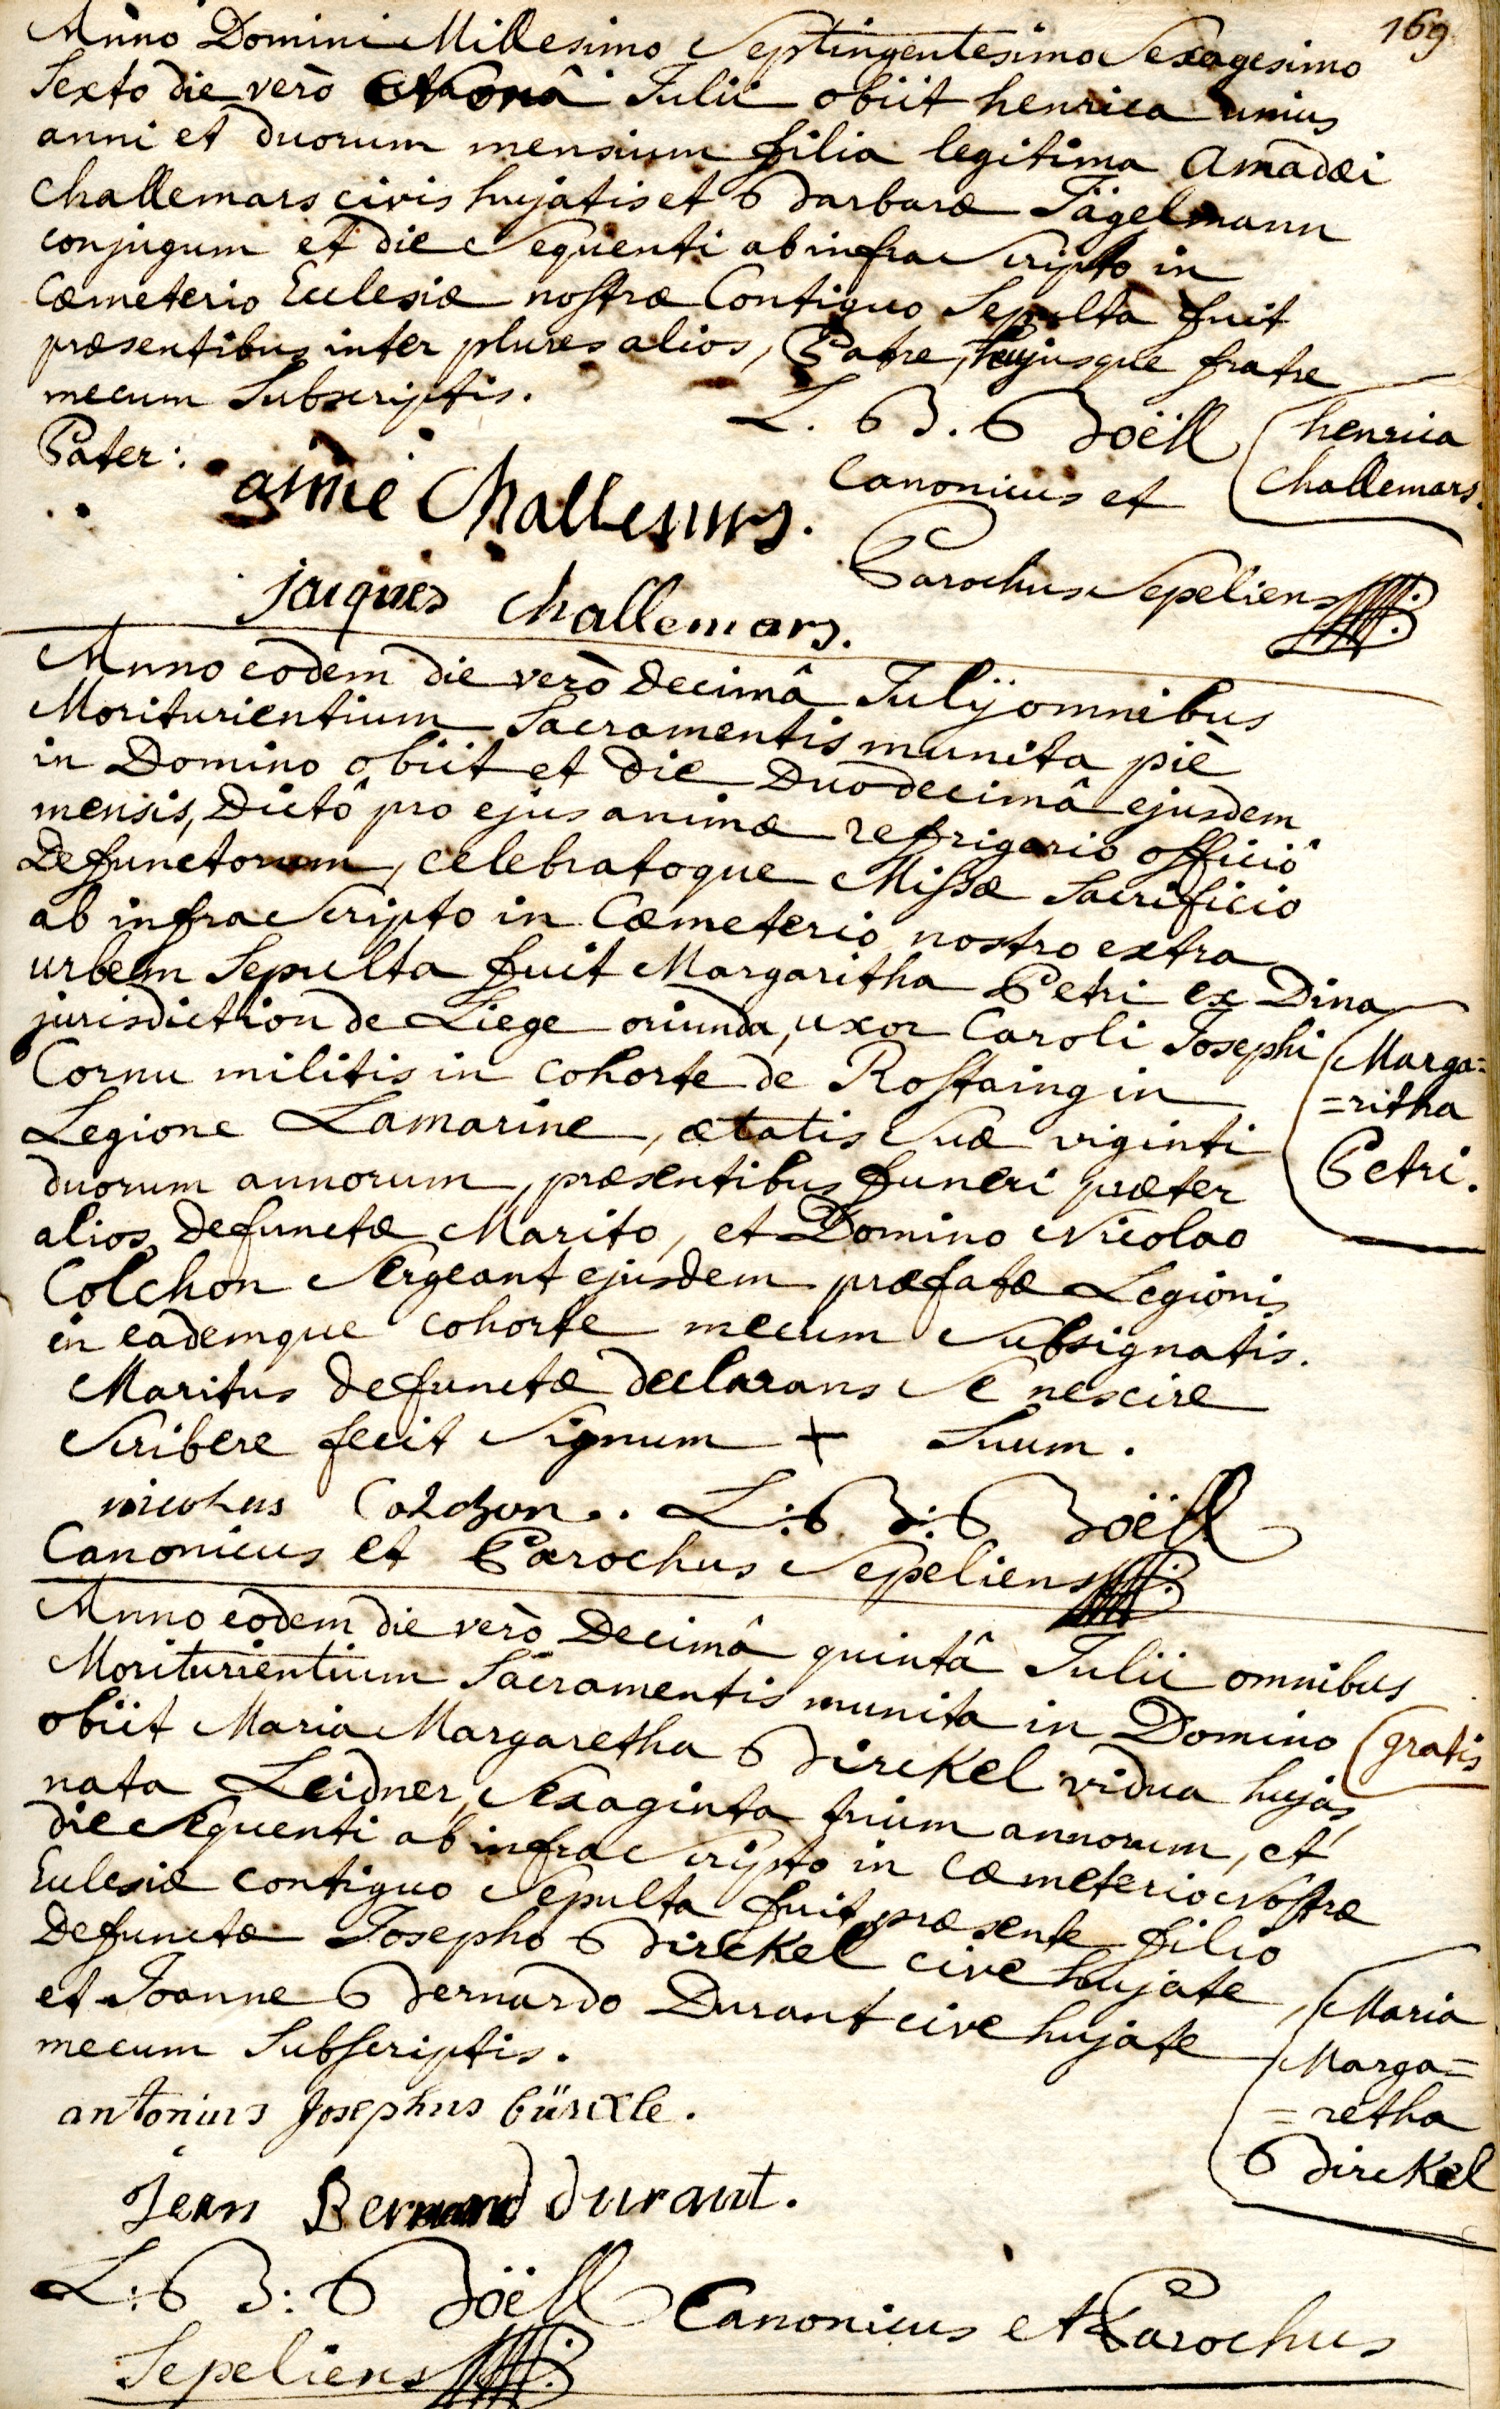 169
Anno Domini Millesimo Septingentesimo Sexagesimo
Sexto die verò Nonâ Julii obiit henrica unius
anni et duorum mensium filia legitima Amadæi
Challemars civis hujatis et Barbaræ Tägelmann
conjugum et die Sequenti ab infra Scripto in
Cæmeterio Ecclesiæ nostræ Contiguo Sepulta fuit
præsentibus inter plures alios, Patre, hujusque fratre
mecum Subscriptis.
L. B. Boëll
henrica
Challemars.
Pater:
aimé Challemars.
Canonicus et
Parochus Sepeliens
jacques Challemars.
Anno eodem die verò Decimâ Julÿ omnibus
Moriturientium Sacramentis munita piè
in Domino obiit et die Duodecimâ ejusdem
mensis, Dictô pro ejus animæ refrigerio officiô
Defunctorum, celebratoque Missæ Sacrificio
ab infra Scripto in Cæmeterio nostro extra
urbem Sepulta fuit Margaritha Petri ex Dina
jurisdiction de Liege oriunda, uxor Caroli Josephi
Cornu militis in cohorte de Rostaing in
Legione Lamarine, ætatis Suæ viginti
duorum annorum, præsentibus funeri præter
alios Defunctæ Marito, et Domino Nicolao
Colchon Sergeant ejusdem præfatæ Legionis
in eademque cohorte mecum Subsignatis.
Marga=
=ritha
Petri.
Maritus defunctæ declarans Se nescire
Scribere fecit Signum + Suum.
nicolas Colchon. L: B: Boëll
Canonicus et Parochus Sepeliens
Anno eodem die verò Decimâ quintâ Julii omnibus
Moriturientium Sacramentis munita in Domino
obiit Maria Margaretha Birckel vidua hujas,
gratis
nata Leidner, Sexaginta trium annorum, et
die Sequenti ab infra Scripto in Cæmeterio Nostræ
Ecclesiæ contiguo Sepulta fuit præsente filio
Defunctæ Josepho Birckel cive hujate,
et Joanne Bernardo Durant cive hujate
mecum Subscriptis.
Maria
Marga=
=retha
Birckel
antonius Josephus bürckle.
Jean Bernard durant.
L: B: Boëll Canonicus et Parochus
Sepeliens